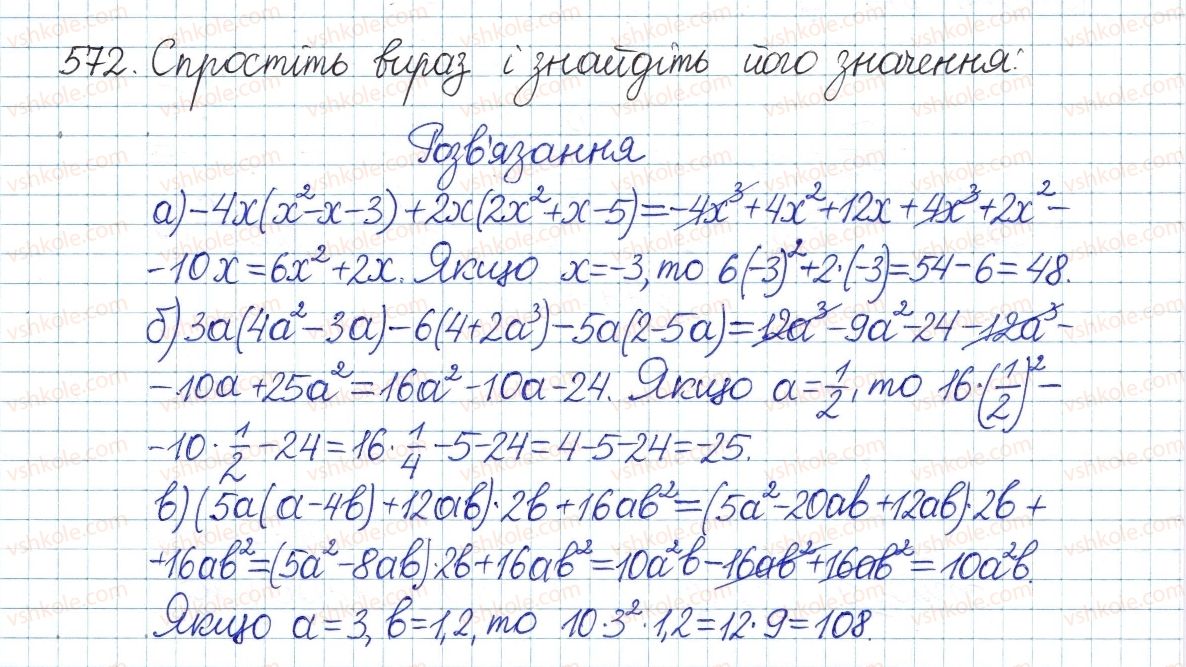 572. Спростіть вираз і знайдіть його значення:
Розв'язання
а) -4x(x²-x-3)+2x(2x²+x-5)=-4x³+4x²+12x+4x³+2x²-
-10x=6x²+2x. Якщо x=-3, то 6(-3)²+2·(-3)=54-6=48.
б) 3a(4a²-3a)-6(4+2a³)-5a(2-5a)=12a³-9a²-24-12a³-
-10a+25a²=16a²-10a-24. Якщо a=1/2, то 16·(1/2)²-
-10·1/2-24=16·1/4-5-24=4-5-24=-25.
в) (5a(a-4b)+12ab)·2b+16ab²=(5a²-20ab+12ab)·2b+
+16ab²=(5a²-8ab)·2b+16ab²=10a²b-16ab²+16ab²=10a²b.
Якщо a=3, b=1,2, то 10·3²·1,2=12·9=108.